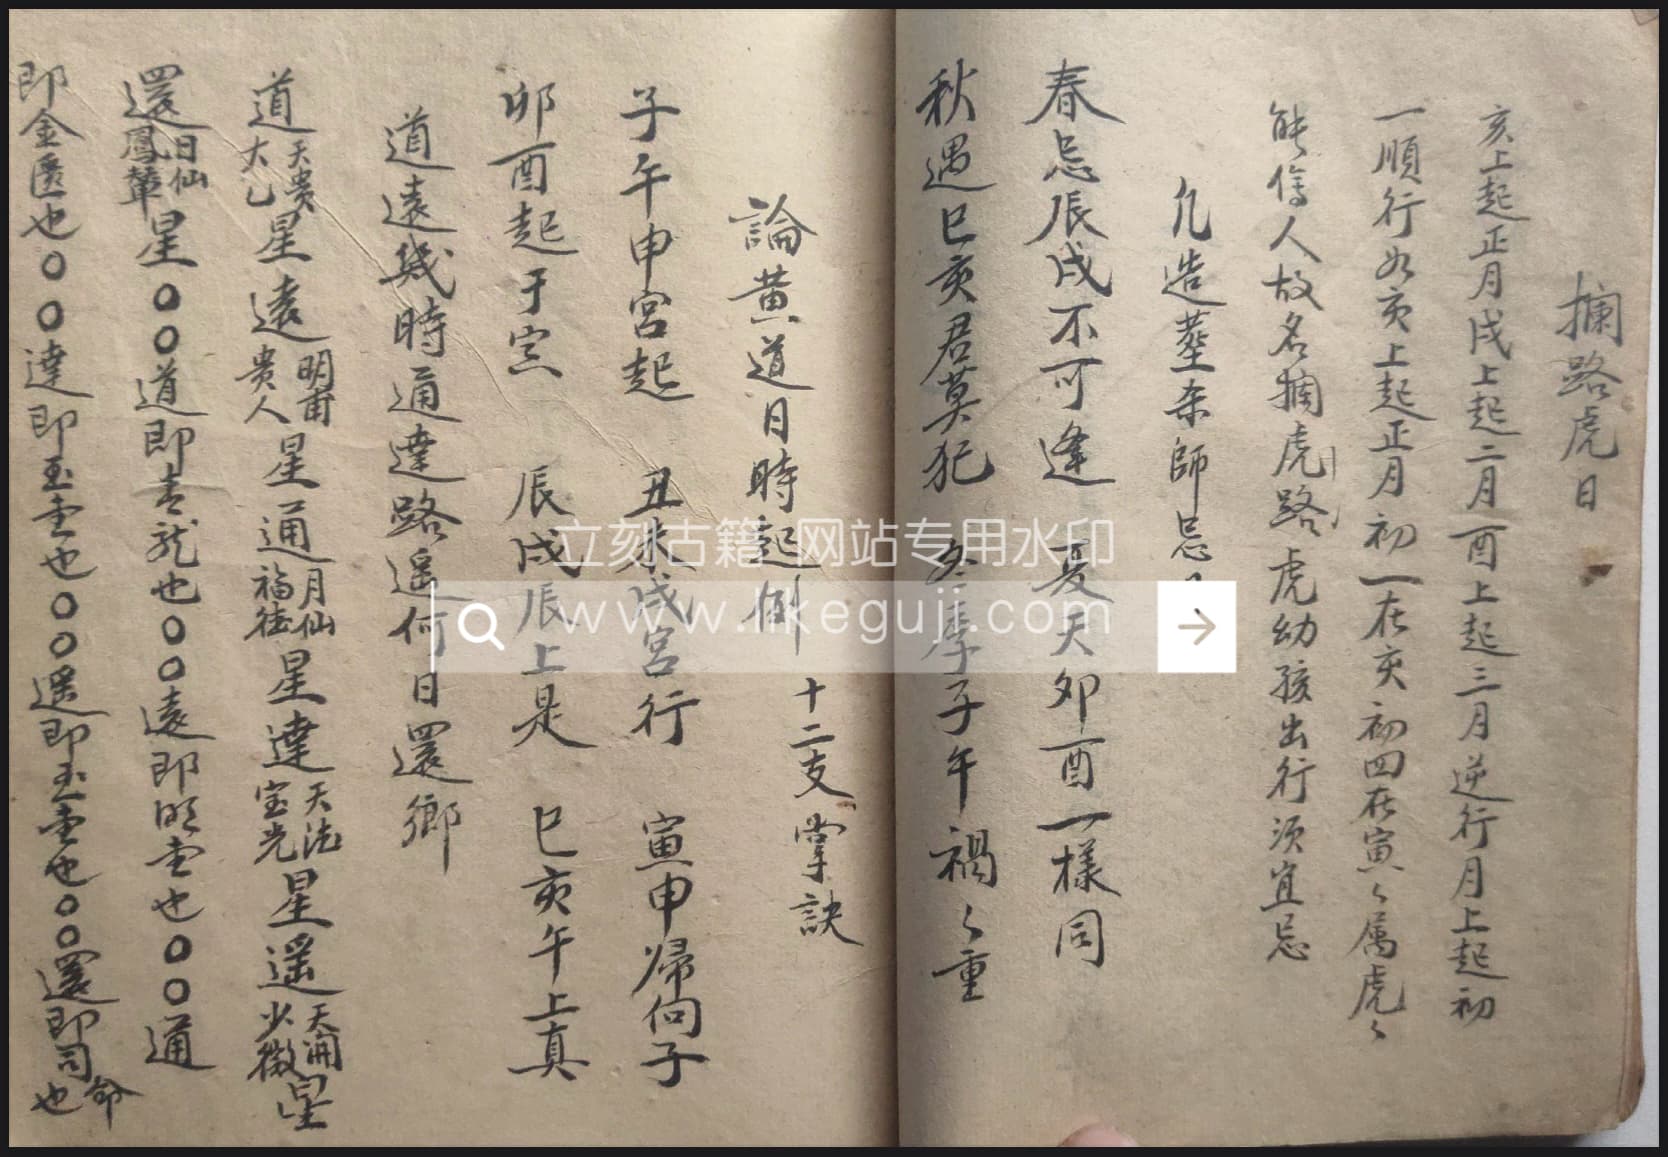 攔路虎日
亥上起正月戌上起二月酉上起三月逆行月上起初
一順行如亥上起正月初一在亥初四在寅〻属虎〻
能傷人故名攔虎路虎幼孩出行須宜忌
凢造塟杀師忌
春忌辰戌不可逢 夏天夘酉一樣同
秋遇巳亥君莫犯 冬季子午禍〻重
論黄道日時起例 十二支掌訣
子午申宮起 丑未戌宮行 寅申帰向子
卯酉起于 辰戌辰上是 巳亥午上真
道遠幾時通達路遥何日還鄉
道天贵大乙星遠明甫贵人星通月仙福德星達天法宝光星遥天開少微星
還日仙鳳輦星〇〇道即青龍也〇〇遠即明堂也〇〇通
即金匱也〇〇達即玉堂也〇〇遥即玉堂也〇〇還即司命也
立刻古籍 网站专用水印
www.likeguji.com